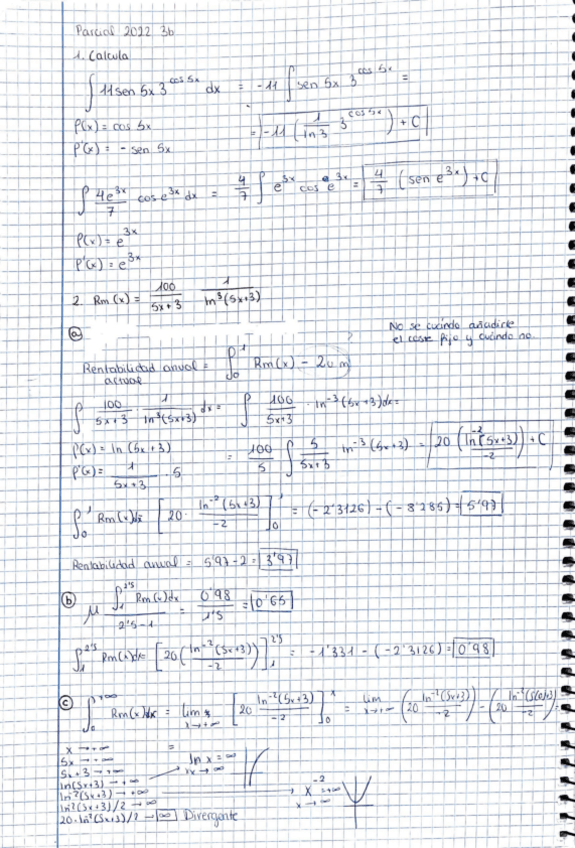 Parcial 2022 3b
1. Calcula
∫ 11 sen 5x 3^cos 5x dx = -11 ∫ sen 5x 3^cos 5x =
P(x) = cos 5x
P'(x) = - sen 5x
= -11 (1/ln 3 3^cos 5x) + C
∫ 4e^3x/7 cos e^3x dx = 4/7 ∫ e^3x cos e^3x = 4/7 (sen e^3x) + C
P(x) = e^3x
P'(x) = e^3x
2. Rm (x) = 100/5x+3 1/ln³(5x+3)
a
No se cuándo añadirle
el coste fijo y cuándo no.
Rentabilidad anual actual = ∫₀¹ Rm(x) - 20
∫ 100/5x+3 · 1/ln³(5x+3) dx = ∫ 100/5x+3 · ln⁻³(5x+3)dx =
P(x) = ln (5x+3)
P'(x) = 1/5x+3 · 5
= 100/5 ∫ 5/5x+3 ln⁻³(5x+3) = 20 (ln⁻²(5x+3)/-2) + C
∫₀¹ Rm(x)dx [20 · ln⁻²(5x+3)/-2]₀¹ = (-2'3126) - (-8'285) = 5'97
Rentabilidad anual = 5'97 - 2 = 3'97
b
μ ∫₁^2'5 Rm(x)dx/2'5-1 = 0'98/1'5 = 0'65
∫₁^2'5 Rm(x)dx = [20 (ln⁻²(5x+3)/-2)]₁^2'5 = -1'331 - (-2'3126) = 0'98
c
∫₀^+∞ Rm(x)dx = lim x→+∞ [20 ln⁻²(5x+3)/-2]₀^x = lim x→+∞ (20 ln⁻²(5x+3)/-2) - (20 ln⁻²(5(0)+3)/-2) =
x → +∞
5x → +∞
5x+3 → +∞
ln(5x+3) → +∞
ln²(5x+3) → +∞
ln²(5x+3)/2 → ∞
20·ln²(5x+3)/2 → ∞ Divergente
=
ln x = ∞
x → ∞
x⁻² → +∞
x → ∞